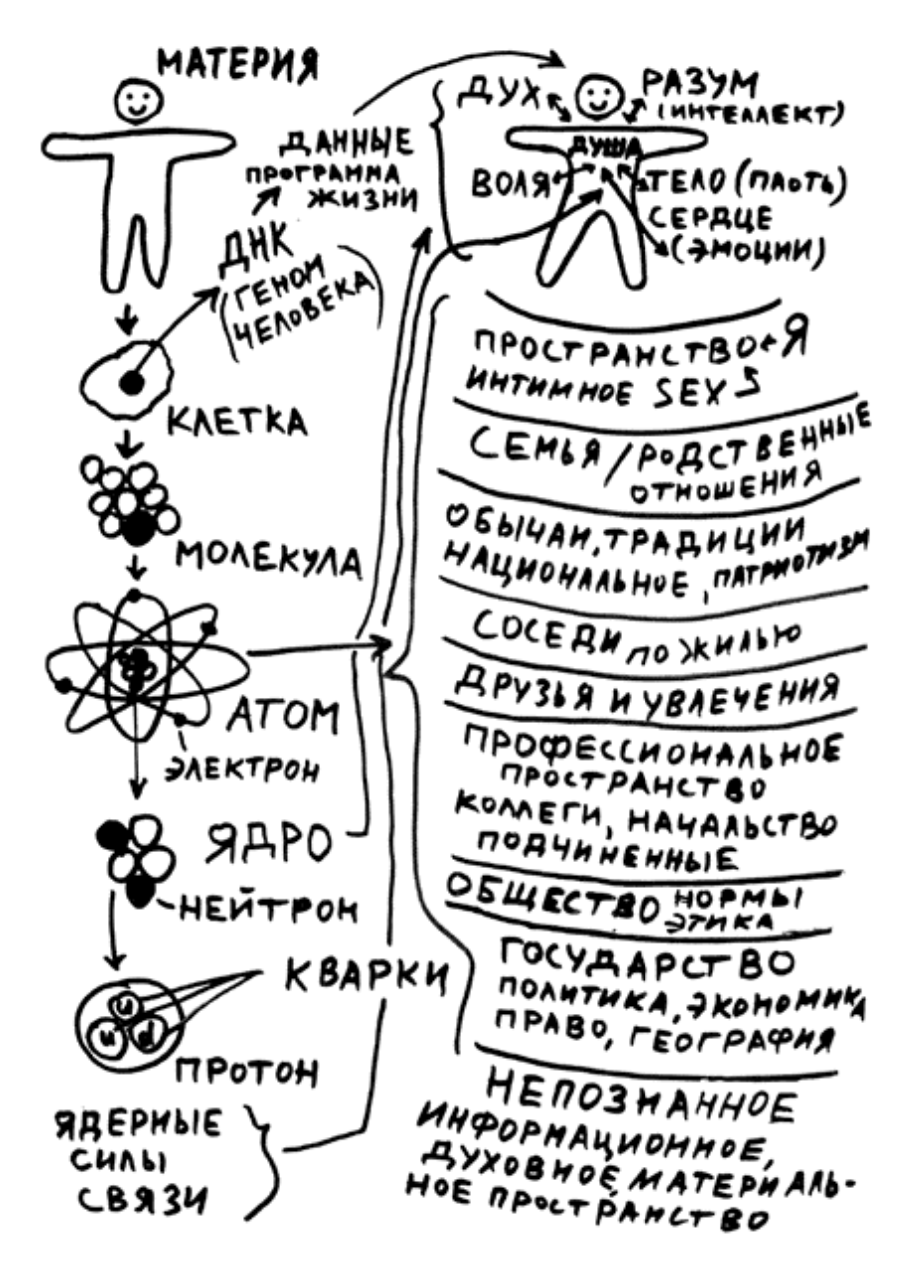 МАТЕРИЯ
ДАННЫЕ
ПРОГРАММА
ЖИЗНИ
ДНК
(ГЕНОМ
ЧЕЛОВЕКА)
КЛЕТКА
МОЛЕКУЛА
АТОМ
ЭЛЕКТРОН
ЯДРО
НЕЙТРОН
КВАРКИ
u
u d
ПРОТОН
ЯДЕРНЫЕ
СИЛЫ
СВЯЗИ
ДУХ
РАЗУМ
(ИНТЕЛЛЕКТ)
ДУША
ВОЛЯ
ТЕЛО (ПЛОТЬ)
СЕРДЦЕ
(ЭМОЦИИ)
ПРОСТРАНСТВО Я
ИНТИМНОЕ SEX
СЕМЬЯ / РОДСТВЕННЫЕ
ОТНОШЕНИЯ
ОБЫЧАИ, ТРАДИЦИИ
НАЦИОНАЛЬНОЕ, ПАТРИОТИЗМ
СОСЕДИ ПО ЖИЛЬЮ
ДРУЗЬЯ И УВЛЕЧЕНИЯ
ПРОФЕССИОНАЛЬНОЕ
ПРОСТРАНСТВО
КОЛЛЕГИ, НАЧАЛЬСТВО
ПОДЧИНЕННЫЕ
ОБЩЕСТВО НОРМЫ
ЭТИКА
ГОСУДАРСТВО
ПОЛИТИКА, ЭКОНОМИКА
ПРАВО, ГЕОГРАФИЯ
НЕПОЗНАННОЕ
ИНФОРМАЦИОННОЕ,
ДУХОВНОЕ, МАТЕРИАЛЬ-
НОЕ ПРОСТРАНСТВО